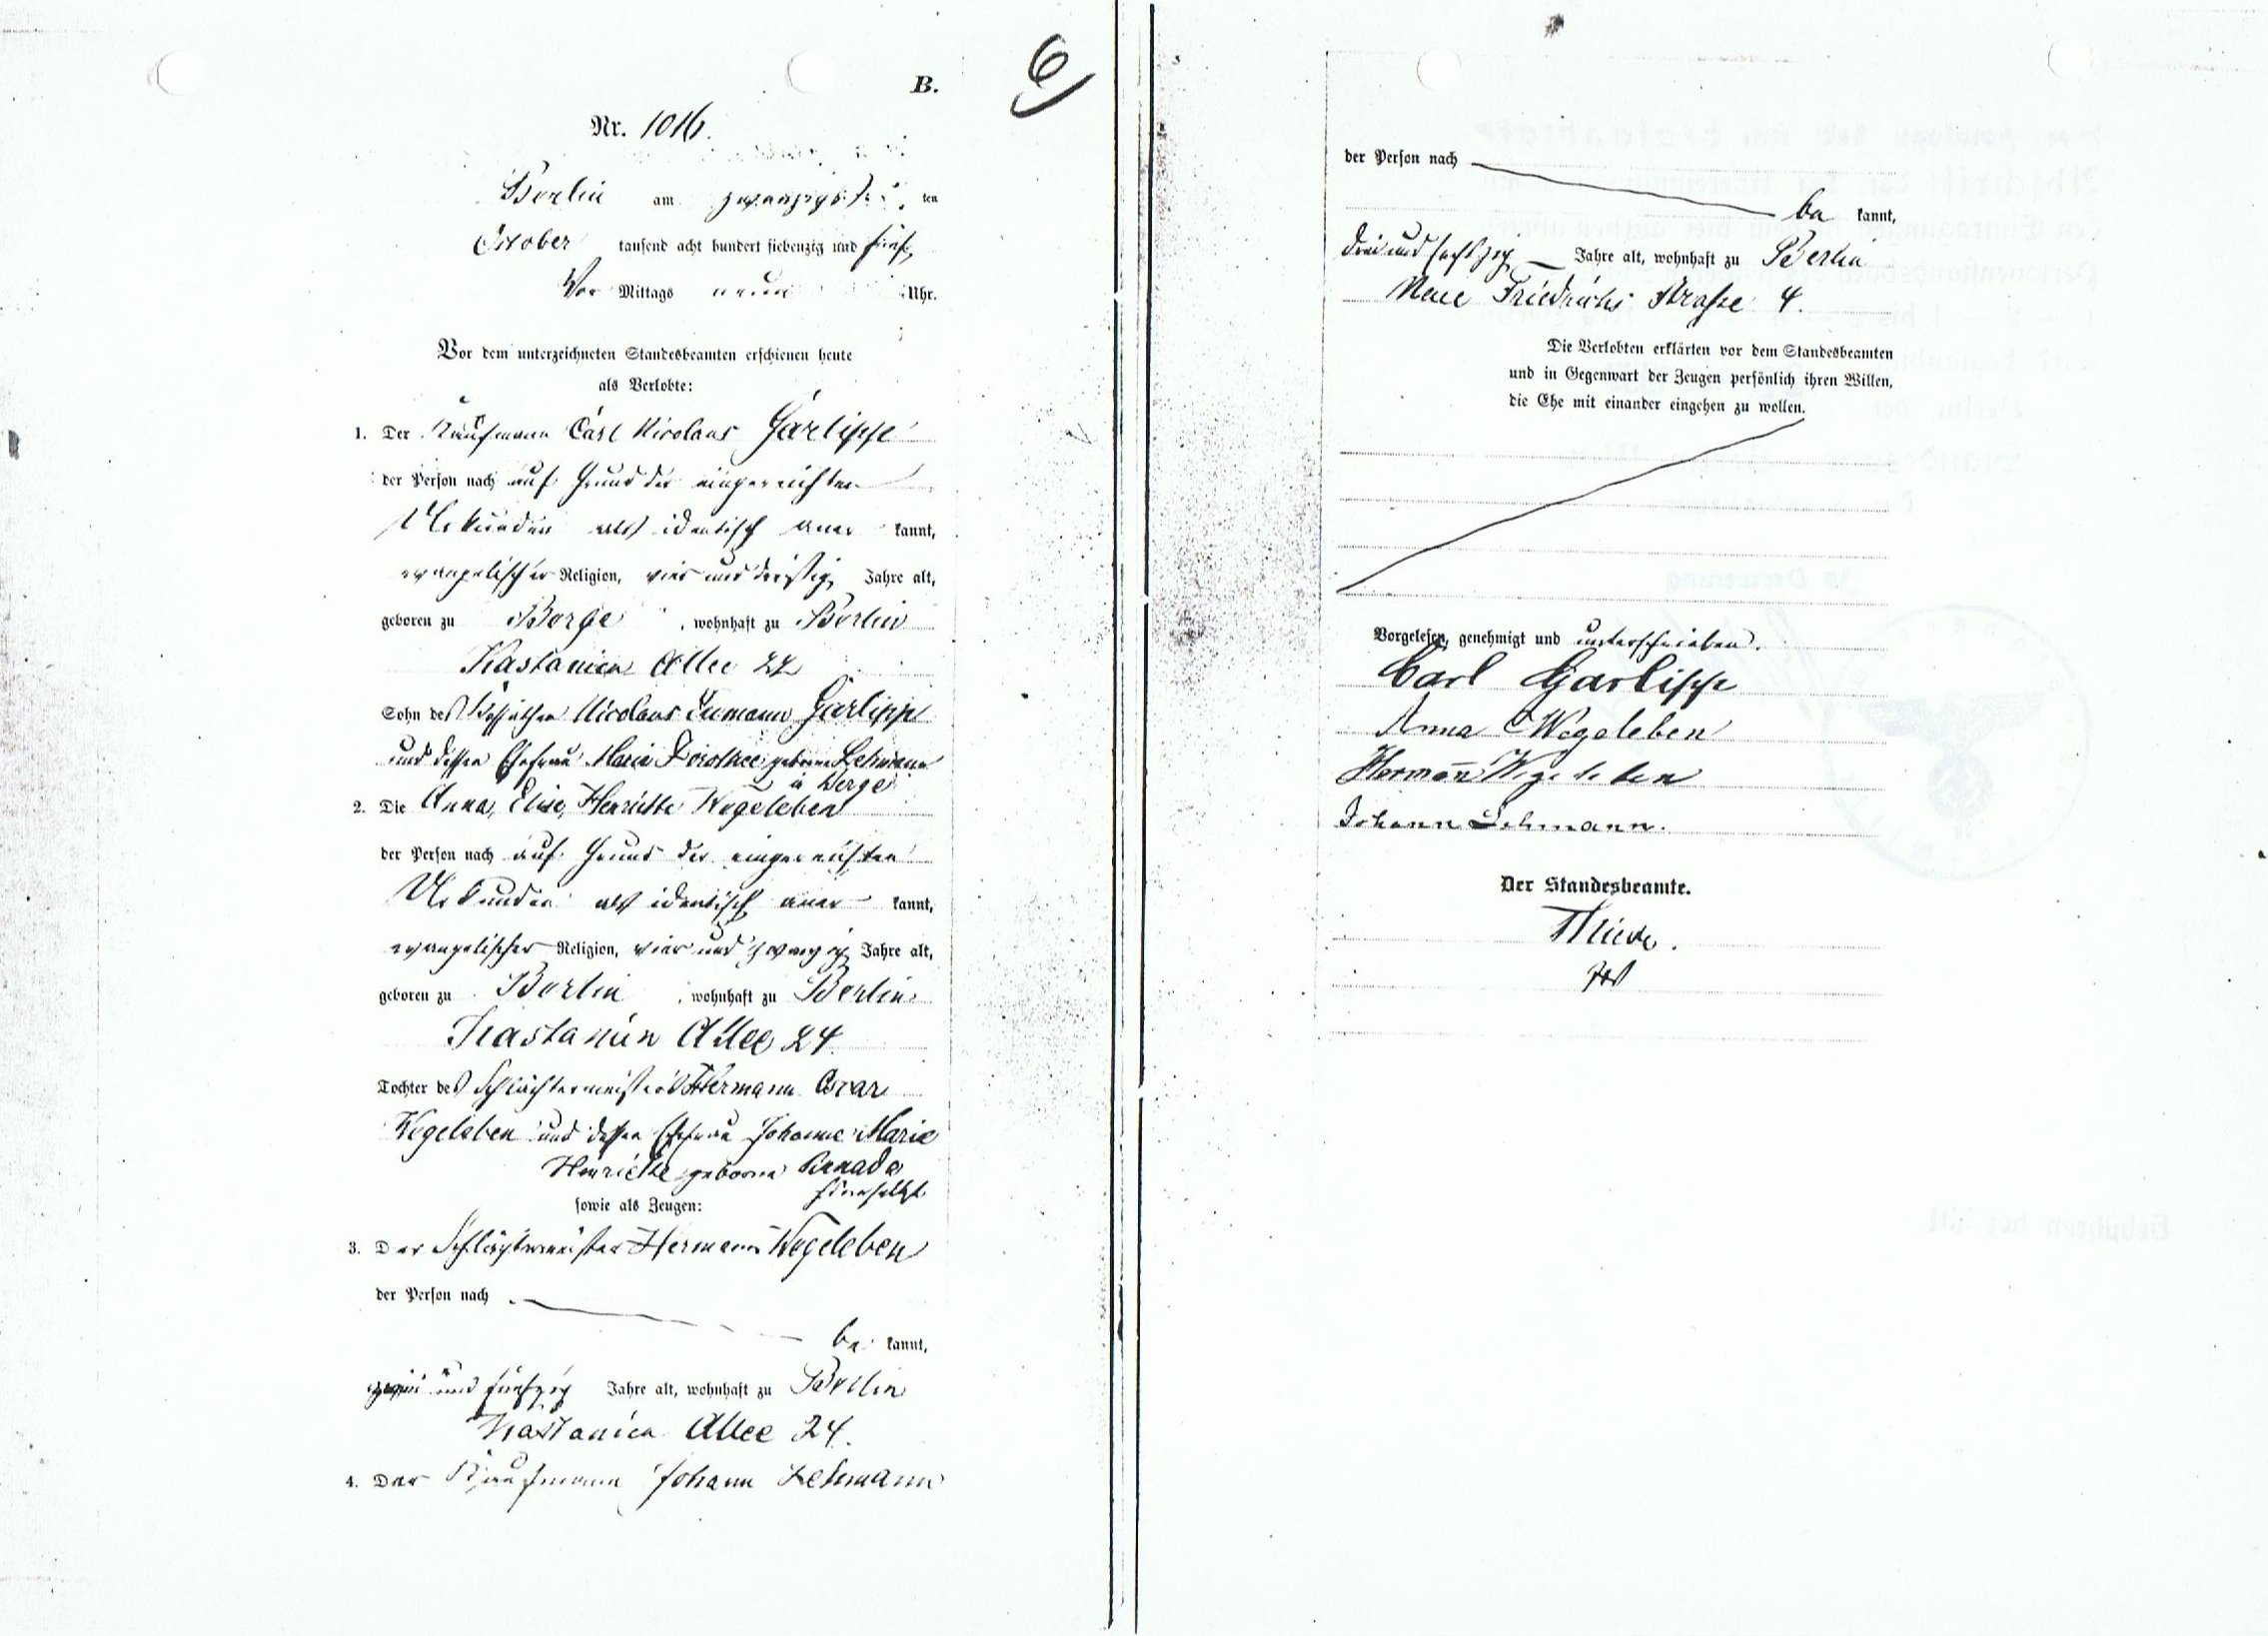 B.
6
Nr. 1016.
Berlin am zwanzigsten ten
October tausend acht hundert siebenzig und fünf,
Vor Mittags neun Uhr.
Vor dem unterzeichneten Standesbeamten erschienen heute
als Verlobte:
1. Der Kaufmann Carl Nicolaus Garlipp
der Person nach auf Grund der eingereichten
Urkunden als identisch aner kannt,
evangelischer Religion, vier und dreißig Jahre alt,
geboren zu Berge, wohnhaft zu Berlin
Kastanien Allee 22
Sohn des Kossathen Nicolaus Garlipp
und dessen Ehefrau Maria Dorothee geborne Lehmann
a Berge
2. Die Anna, Elise, Henriette Wegeleben
der Person nach auf Grund der eingereichten
Urkunden als identisch aner kannt,
evangelischer Religion, vier und zwanzig Jahre alt,
geboren zu Berlin, wohnhaft zu Berlin
Kastanien Allee 24.
Tochter des Schlächtermeisters Hermann Oscar
Wegeleben und dessen Ehefrau Johanne Marie
Henriette geborne
hierselbst
sowie als Zeugen:
3. Der Schlächtermeister Hermann Wegeleben
der Person nach
be kannt,
und fünfzig Jahre alt, wohnhaft zu Berlin
Kastanien Allee 24.
4. Der Kaufmann Johann Lehmann
der Person nach
be kannt,
drei und sechszig Jahre alt, wohnhaft zu Berlin
Neue Friedrichs Strasse 4.
Die Verlobten erklärten vor dem Standesbeamten
und in Gegenwart der Zeugen persönlich ihren Willen,
die Ehe mit einander eingehen zu wollen.
Vorgelesen, genehmigt und unterschrieben.
Carl Garlipp
Anna Wegeleben
Hermann Wegeleben
Johann Lehmann.
Der Standesbeamte.